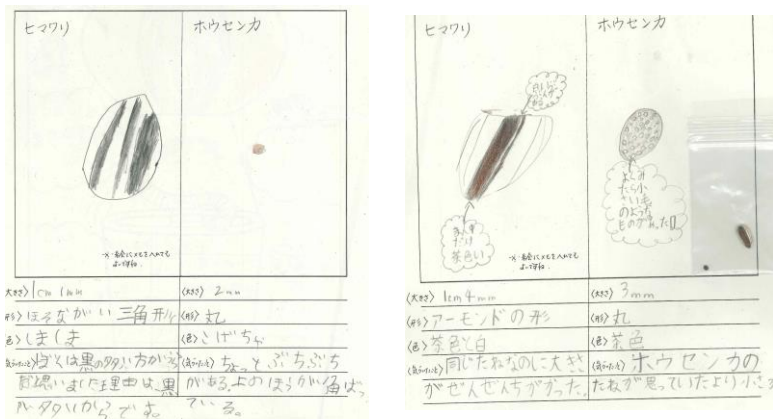 ヒマワリ
ホウセンカ
※絵にメモを入れても
よいですね。
〈大きさ〉1cm 1mm
〈形〉ほそながい 三角形
〈色〉しましま
〈気づいたこと〉ぼくは黒の多い方が
理由は、黒
が多いからです。
〈大きさ〉2mm
〈形〉丸
〈色〉こげちゃ
〈気づいたこと〉ちょっと ぶちぶち
がある。上のほうが角ば
っている。
ヒマワリ
ホウセンカ
まん中
だけ
茶色い
よくみ
たら小
さい毛
のような
ものが
※絵にメモを入れても
よいですね。
〈大きさ〉1cm 4mm
〈形〉アーモンドの形
〈色〉茶色と白
〈気づいたこと〉同じたねなのに大きさ
がぜんぜんちがかった。
〈大きさ〉3mm
〈形〉丸
〈色〉茶色
〈気づいたこと〉ホウセンカの
たねが思っていたより小さ